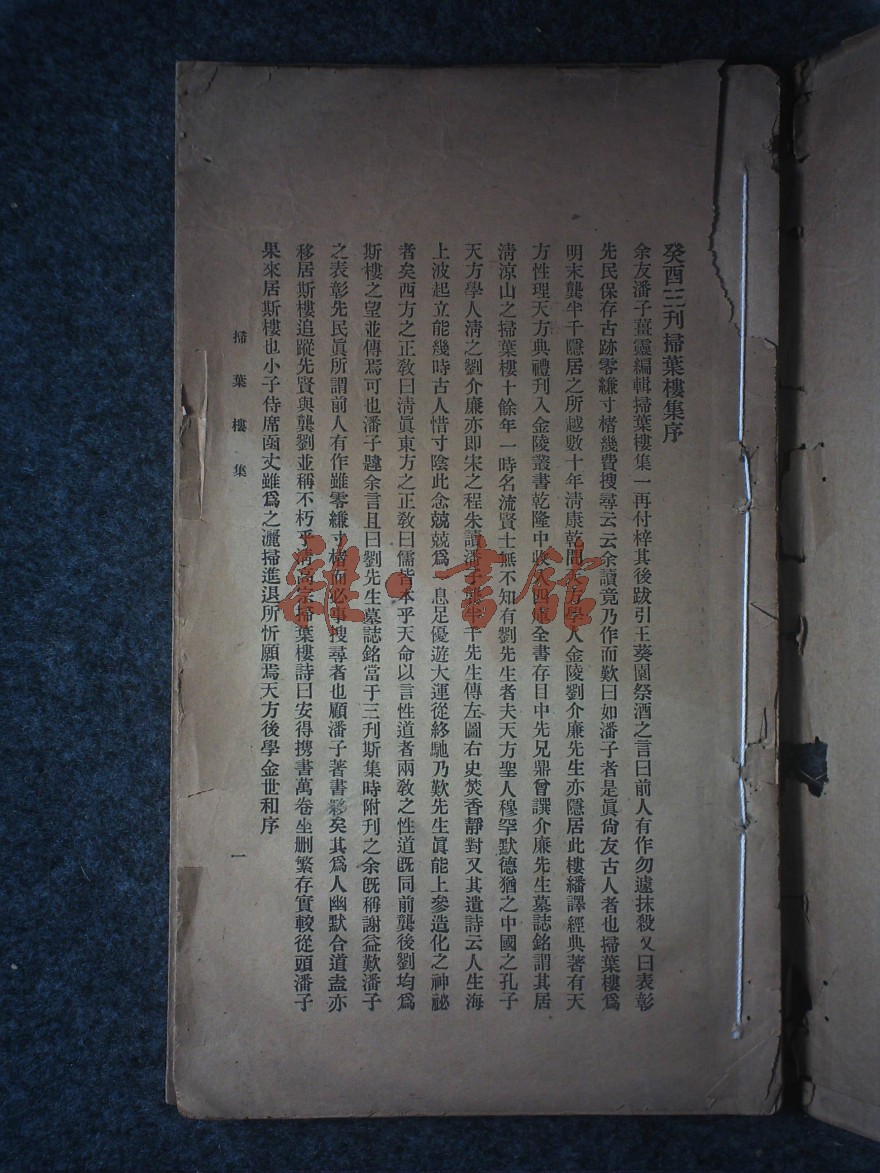 癸酉三刊掃葉樓集序
余友潘子薑靈編輯掃葉樓集一再付梓其後跋引王葵園祭酒之言曰前人有作勿遽抹殺又曰表彰
先民保存古跡零縑寸楮幾費搜尋云云余讀竟乃作而歎曰如潘子者是眞尙友古人者也掃葉樓爲
明末龔半千隱居之所越數十年淸康乾間天方學人金陵劉介廉先生亦隱居此樓繙譯經典著有天
方性理天方典禮刊入金陵叢書乾隆中收入四庫全書存目中先兄鼎曾譔介廉先生墓誌銘謂其居
淸涼山之掃葉樓十餘年一時名流賢士無不知有劉先生者夫天方聖人穆罕默德猶之中國之孔子
天方學人淸之劉介廉亦卽宋之程朱讀潘子龔半千先生傳左圖右史焚香靜對又其遺詩云人生海
上波起立能幾時古人惜寸陰此念兢兢爲 息足優遊大運從終馳乃歎先生眞能上參造化之神祕
者矣西方之正敎曰淸眞東方之正敎曰儒皆本乎天命以言性道者兩敎之性道旣同前龔後劉均爲
斯樓之望並傳焉可也潘子韙余言且曰劉先生墓誌銘當于三刊斯集時附刊之余旣稱謝益歎潘子
之表彰先民眞所謂前人有作雖零縑寸楮而必事搜尋者也顧潘子著書夥矣其爲人幽默合道盍亦
移居斯樓追蹤先賢與龔劉並稱不朽乎淸高宗掃葉樓詩曰安得携書萬卷坐删繁存實較從頭潘子
果來居斯樓也小子侍席函丈雖爲之灑掃進退所忻願焉天方後學金世和序
掃葉樓集
一
雜·書館